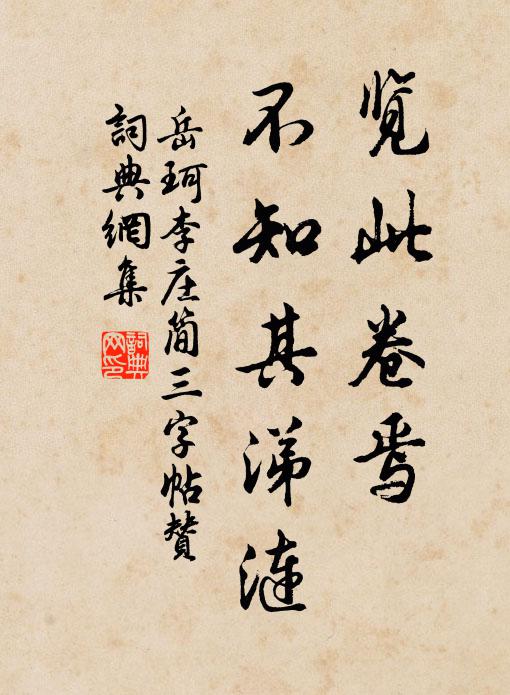 览此卷焉
不知其涕涟
岳珂李庄简三字帖赞
詞典網集
詞典网印